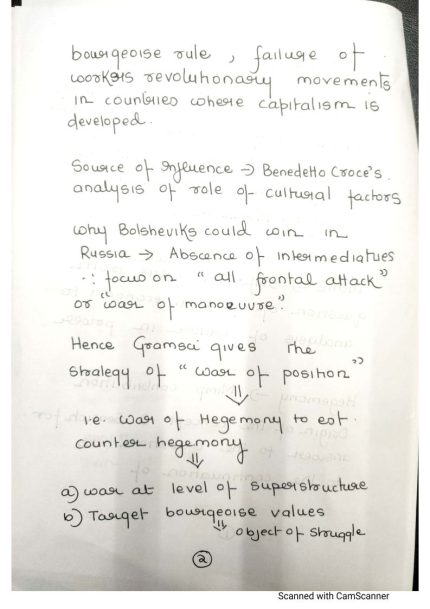 bourgeoise rule, failure of
workers revolutionary movements
in countries where capitalism is
developed.
Source of Influence → Benedetto Croce's
analysis of role of cultural factors
why Bolsheviks could win in
Russia → Abscence of intermediatries
∴ focus on "all frontal attack"
or "war of manoeuvre".
Hence Gramsci gives the
strategy of "war of position"
⇓
i.e. war of Hegemony to est.
counter hegemony
⇓
a) war at level of superstructure
b) Target bourgeoise values
⇓ object of struggle
2
Scanned with CamScanner